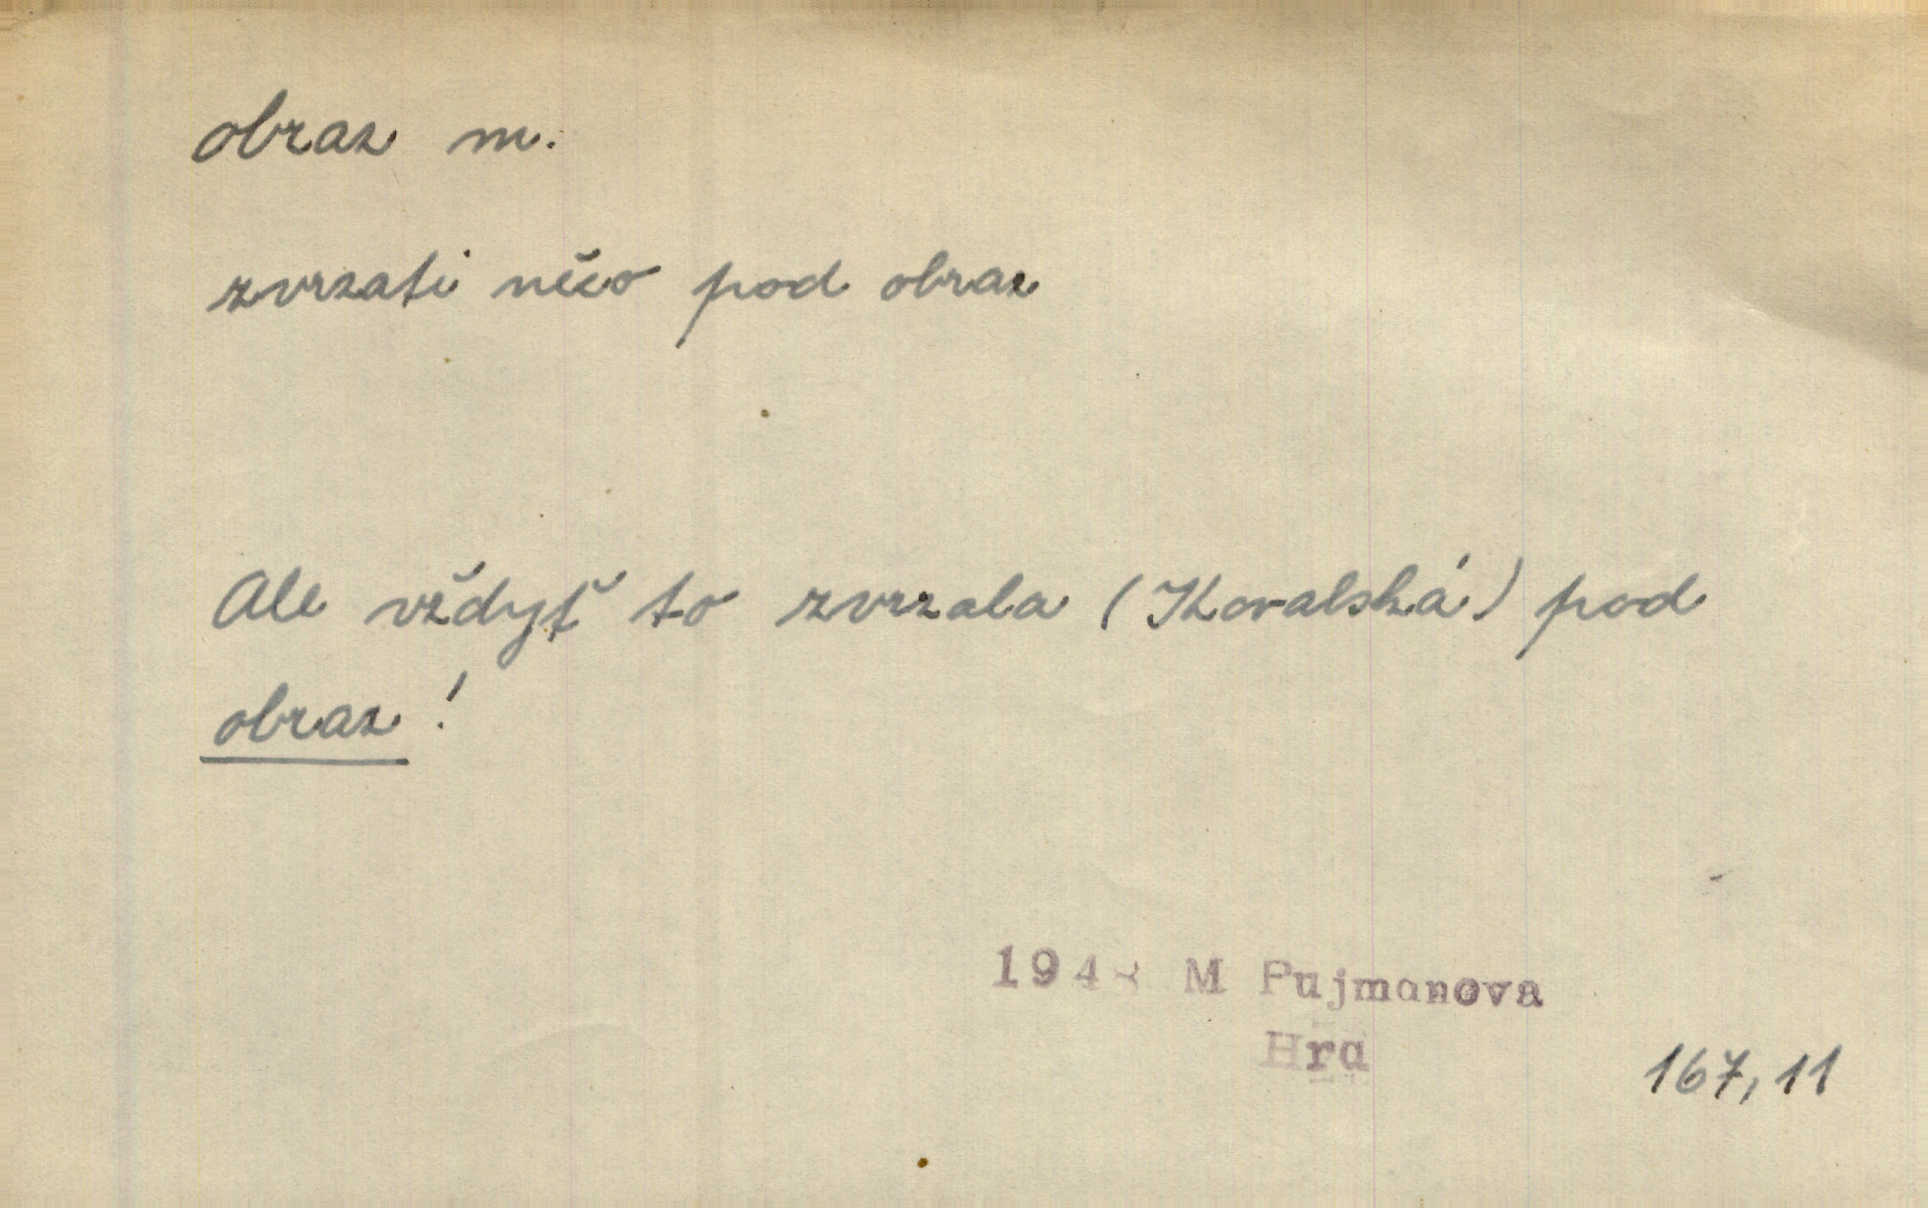 obraz m.
zvrzati něco pod obraz
Ale vždyť to zvrzala (Kovalská) pod
obraz!
1948 M Pujmanova
Hra
167, 11